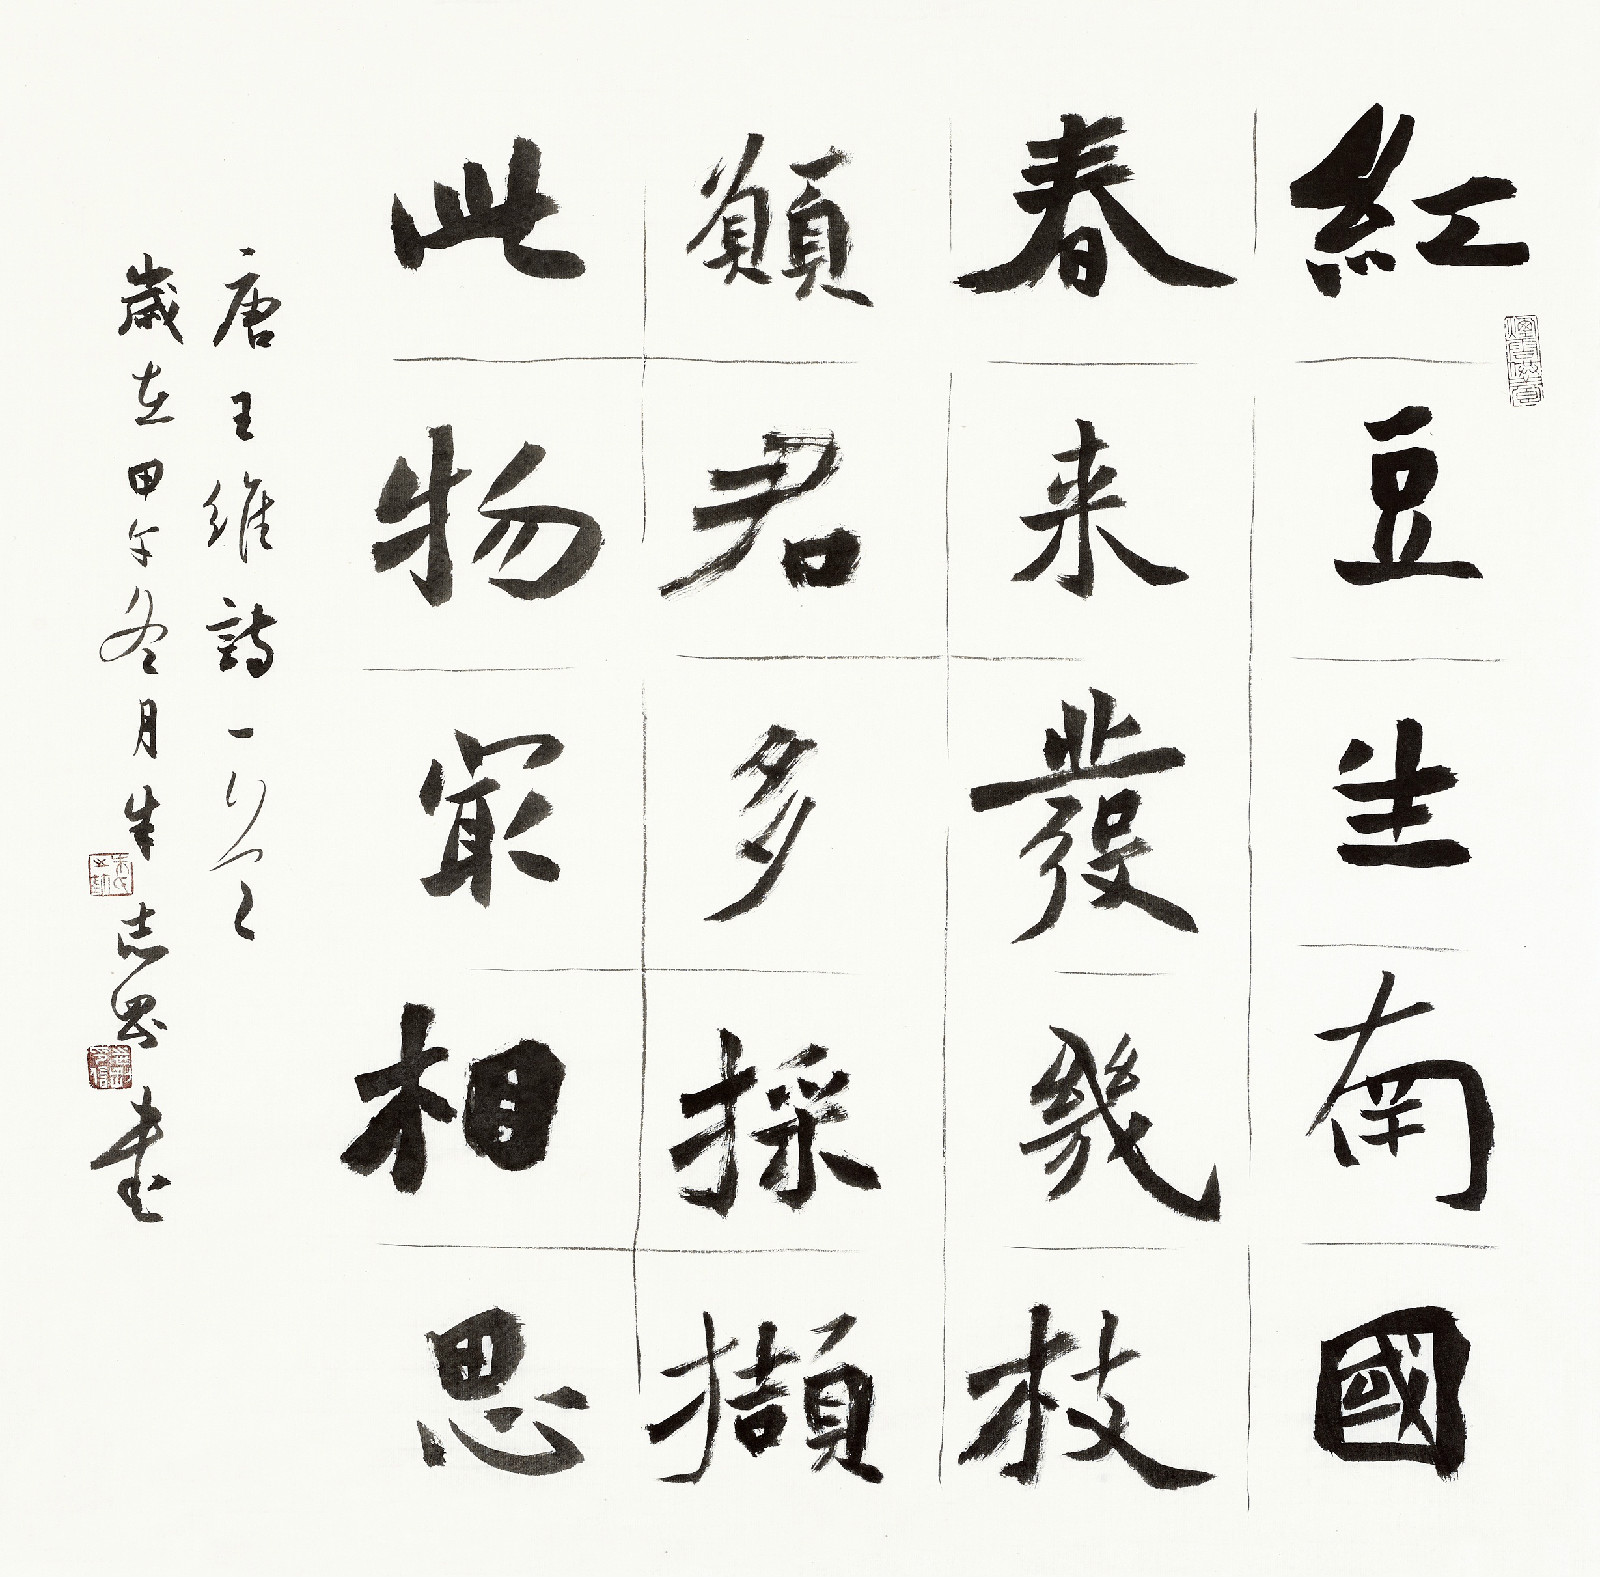 紅豆生南國
春来發幾枝
願君多採擷
此物冣相思
唐王維詩一首
歲在甲午冬月朱志
書